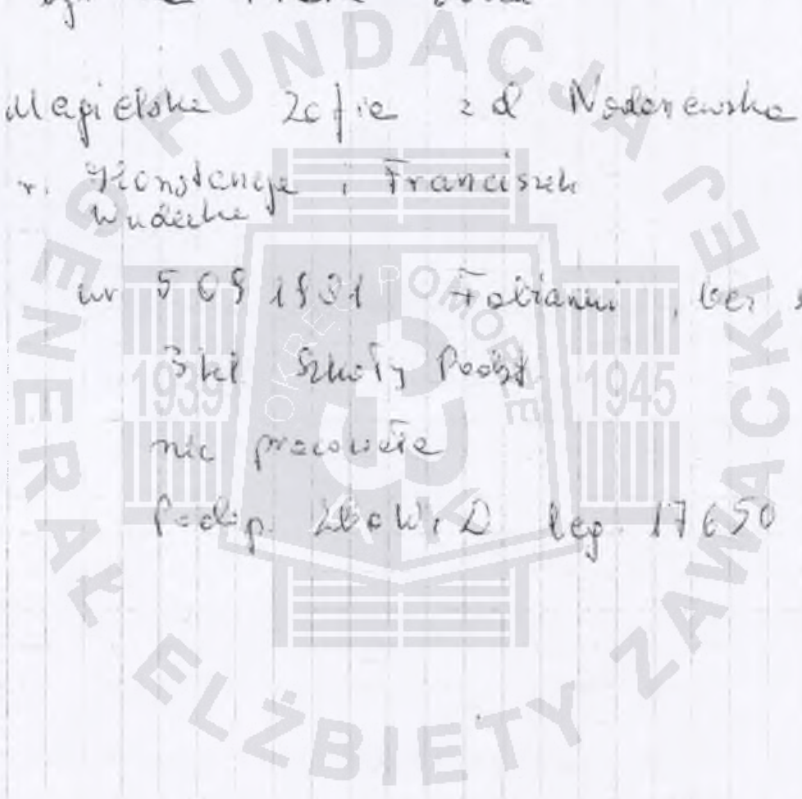 Magielska Zofia z d Nadanewska
r. Konstancja i Franciszek
Wudecka
ur 5 09 1931 Fabianki
3 kl Szkoły Podst
nie pracowała
Podop. ZBoWiD leg. 17650
FUNDACJA
GENERAŁ ELŻBIETY ZAWACKIEJ
OKRĘG POMORZE
1939
1945